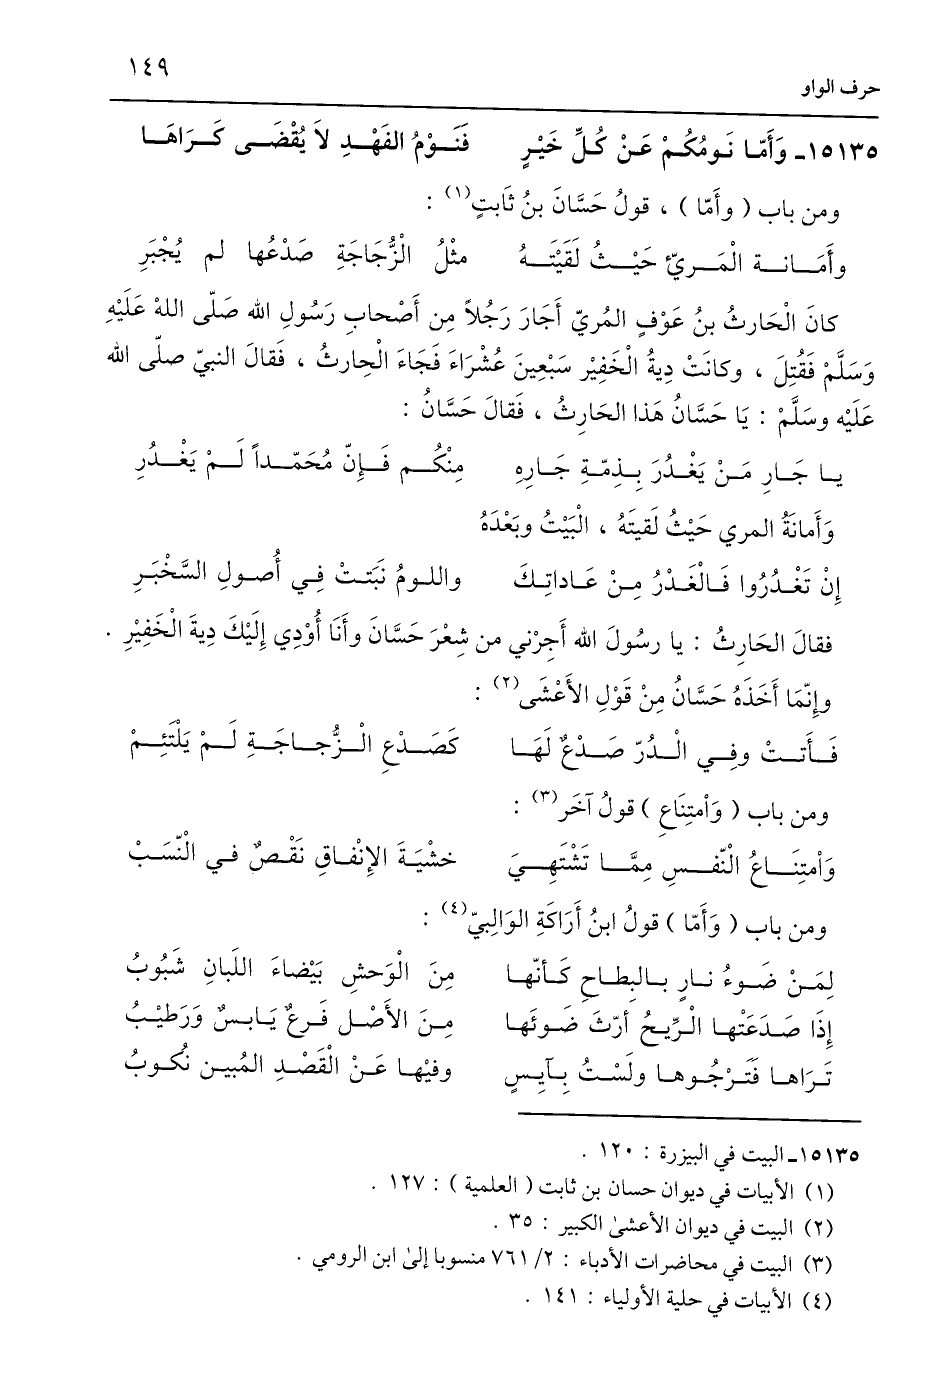 حرف الواو ١٤٩
١٥١٣٥ـ وَأَمّا نَومُكُمْ عَنْ كُلِّ خَيْرٍ فَنَوْمُ الفَهْدِ لاَ يُقْضَى كَرَاهَا
ومن باب ( وأَمّا ) ، قولُ حَسَّانَ بنُ ثَابتٍ(١) :
وأَمَانة الْمَريّ حَيْثُ لَقَيْتَهُ مثْلُ الْزُّجَاجَةِ صَدْعُها لم يُجْبَرِ
كانَ الْحَارِثُ بنُ عَوْفٍ المُريّ أَجَارَ رَجُلاً مِن أَصْحابِ رَسُولِ الله صَلّى اللهْ عَلَيْهِ
وَسَلَّمْ فَقُتِلَ ، وكانَتْ دِيةُ الْخَفِيْر سَبْعِينَ عُشْرَاءَ فَجَاءَ الْحِارثُ ، فَقالَ النبيّ صلّى الله
عَلَيْه وسَلَّمْ : يَا حَسَّانُ هَذا الحَارِثُ ، فَقالَ حَسَّانُ :
يا جَارِ مَنْ يَغْدُرَ بِذِمّةِ جَارِهِ مِنْكُم فَإِنّ مُحَمّداً لَمْ يَغْدُرِ
وَأَمانَةُ المري حَيْثُ لَقيتَهُ ، الْبَيْتُ وبَعْدَهُ
إِنْ تَغْدُرُوا فَالْغَدْرُ مِنْ عَاداتِكَ واللومُ نَبَتتْ فِي أُصولِ السَّخْبَرِ
فقالَ الحَارِثُ : يا رسُولَ الله أَجِرْني من شِعْرَ حَسَّانَ وأَنَا أُوْدِي إِلَيْكَ دِيةَ الْخَفِيْرِ .
وإِنّمَا أَخَذَهُ حَسَّانُ مِنْ قَوْلِ الأَعْشَى(٢) :
فَأَتتْ وفِي الْدُرّ صَدْعٌ لَهَا كَصَدْعِ الْزُّجاجَةِ لَمْ يَلْتَئِمْ
ومن باب ( وَأمتِنَاعِ ) قولُ آخَر(٣) :
وَأمتِنَاعُ الْنّفْسِ مِمَّا تَشْتَهِيَ خشْيَةَ الإِنْفاقِ نَقْصٌ في الْنّسَبْ
ومن باب ( وَأَمّا ) قولُ ابنُ أَرَاكَةِ الوَالِبيّ(٤) :
لِمَنْ ضَوءُ نارٍ بالبطاحِ كَأَنّها مِنَ الْوَحشِ بَيْضَاءَ اللَبانِ شَبُوبُ
إِذَا صَدَعَتْها الْرّيحُ أرّثَ ضَوئَها مِنَ الأَصْلِ فَرعٌ يَابسٌ وَرَطيْبُ
تَراها فَتَرْجُوها ولَسْتُ بآيسٍ وفيْها عَنْ الْقَصْدِ المُبين نُكُوبُ
١٥١٣٥ـ البيت في البيزرة : ١٢٠ .
(١) الأبيات في ديوان حسان بن ثابت ( العلمية ) : ١٢٧ .
(٢) البيت في ديوان الأعشىٰ الكبير : ٣٥ .
(٣) البيت في محاضرات الأدباء : ٢/ ٧٦١ منسوبا إلىٰ ابن الرومي .
(٤) الأبيات في حلية الأولياء : ١٤١ .